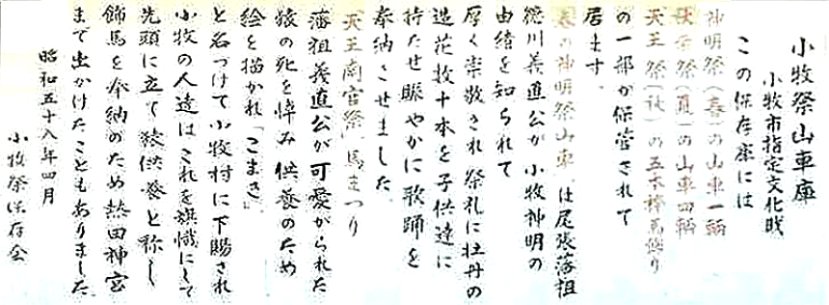 小牧祭山車庫
小牧市指定文化財
この保存庫には
神明祭(春)の山車一輌
秋葉祭(夏)の山車四輌
天王祭(秋)の五本棒馬飾り
の一部が保管されて
居ます。
春の神明祭山車 は尾張藩祖
徳川義直公が小牧神明の
由緒を知られて
厚く崇敬され祭礼に牡丹の
造花数十本を子供達に
持たせ賑やかに歌踊を
奉納させました。
天王南宮祭 馬まつり
藩祖義直公が可愛がられた
猿の死を悼み供養のため
絵を描かれ「こまき」
と名づけて小牧村に下賜され
小牧の人達はこれを旗幟にして
先頭に立て猿供養と称し
飾馬を奉納のため熱田神宮
まで出かけたこともありました
昭和五十八年四月
小牧祭保存会